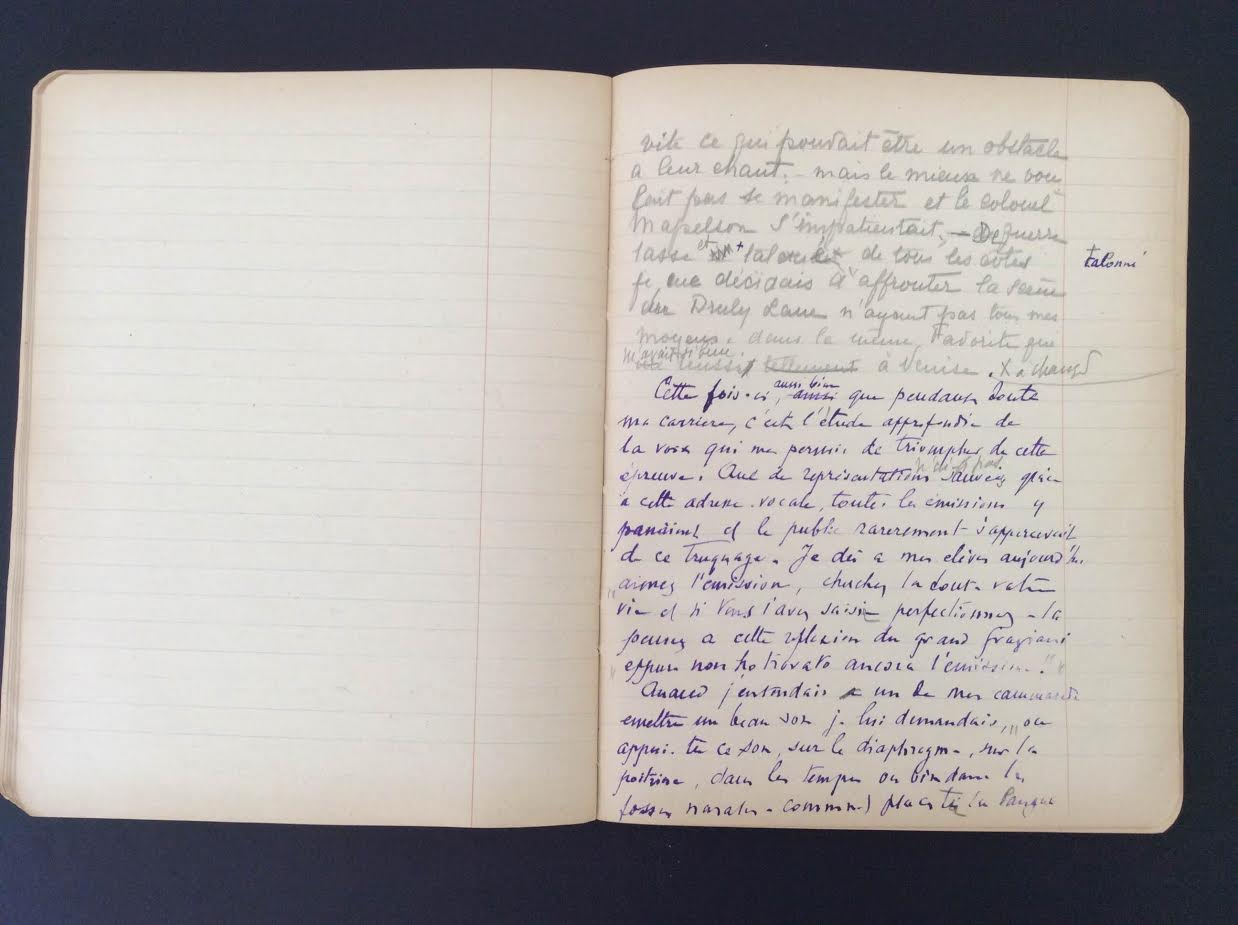 vite ce qui pouvait être un obstacle
a leur chant. - mais le mieux ne vou
lait pas se manifester et le colonel
Mapelson s'impatientait, - De guerre
lasse et + talonné de tous les cotés
je me décidais à affronter la scène
du Druly Lane n'ayant pas tous mes
moyens. dans la même Favorite qui
m'avait si bien
reussi tellement à Venise. X a changé
talonné
aussi bien
Cette fois-ci, ainsi que pendant toute
ma carriere, c'est l'étude approfondie de
la voix qui me permis de triompher de cette
épreuve. Que de représentations sauvées grâce
a cette adresse vocale, toutes les émissions y
passaient et le public rarement s'appercevait
de ce truquage. Je dis a mes elèves aujourd'hui
"aimez l'émission, cherchez la toute votre
vie et si vous l'avez saisie perfectionnez-la
pensez a cette reflexion du grand Graziani
"eppure non ho trovato ancora l'émission!"
Quand j'entendais un de mes camarades
emettre un beau son je lui demandais, "ou
appuies-tu ce son, sur le diaphragme, sur la
poitrine, dans les tempes ou bien dans les
fosses nasales - comment places tu la langue